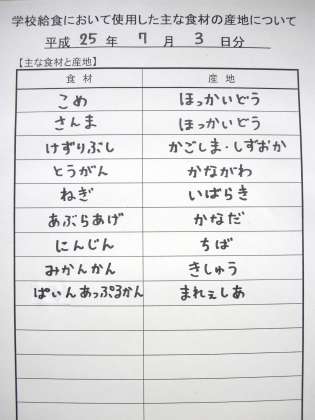 学校給食において使用した主な食材の産地について
平成 25 年 7 月 3 日分
【主な食材と産地】
食材 産地
こめ ほっかいどう
さんま ほっかいどう
けずりぶし かごしま・しずおか
とうがん かながわ
ねぎ いばらき
あぶらあげ かなだ
にんじん ちば
みかんかん きしゅう
ぱぃんあっぷるかん まれぇしあ